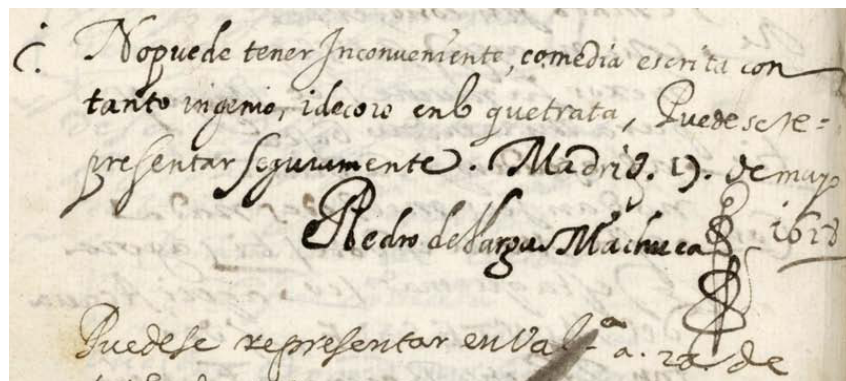 No puede tener Inconveniente, comedia escrita con
tanto ingenio, i decoro en lo que trata, Puedese re=
presentar seguramente. Madrid. 17. de mayo
Pedro de Vargas Machuca 1628
Puedese representar en Val.ª a. 20 de